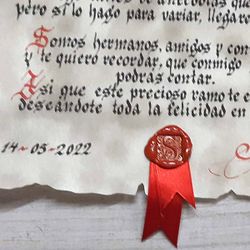 pero si lo hago para variar, llegar
Somos hermanos, amigos y con
y te quiero recordar, que conmigo
podrás contar.
Así que este precioso ramo te e
deseándote toda la felicidad en
14-05-2022
S